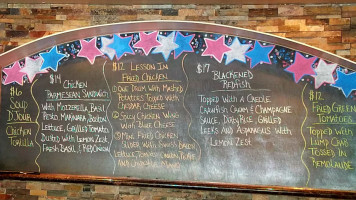 $6
Soup
D'Jour
Chicken
Tortilla
$14
Chicken
Parmesan Sandwich
with Mozzarella, Basil
Pesto, Marinara, Boston
Lettuce, Grilled Tomato
Dusted with Lemon Zest
Fresh Basil & Red Onion
$12 Lesson In
Fried Chicken
① One Drum with Mashed
Potatoes Topped with
Cheddar Cheese
② Spicy Chicken Wing
with Blue Cheese
③ Mini Fried Chicken
Slider with Swiss Bacon
Lettuce Tomato
$17
Blackened
Redfish
Topped with a Creole
Crawfish Cream & Champagne
Sauce, Dirty Rice, Grilled
Leeks and Asparagus with
Lemon Zest
$12
Fried Green
Tomatoes
Topped with
Lump Crab
Tossed in
Remoulade